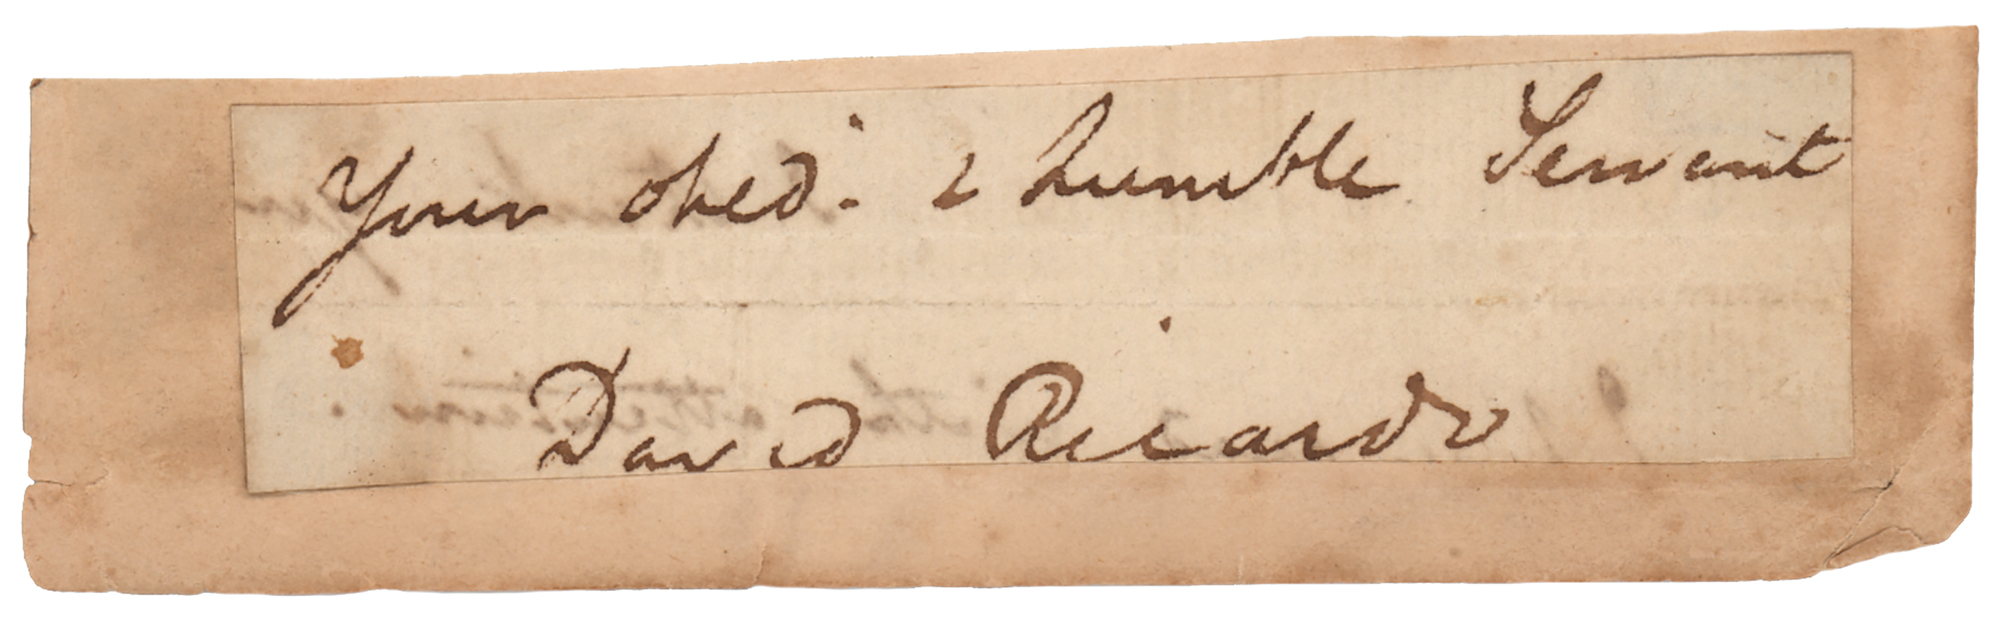 Your obed. & humble Servant
David Ricardo